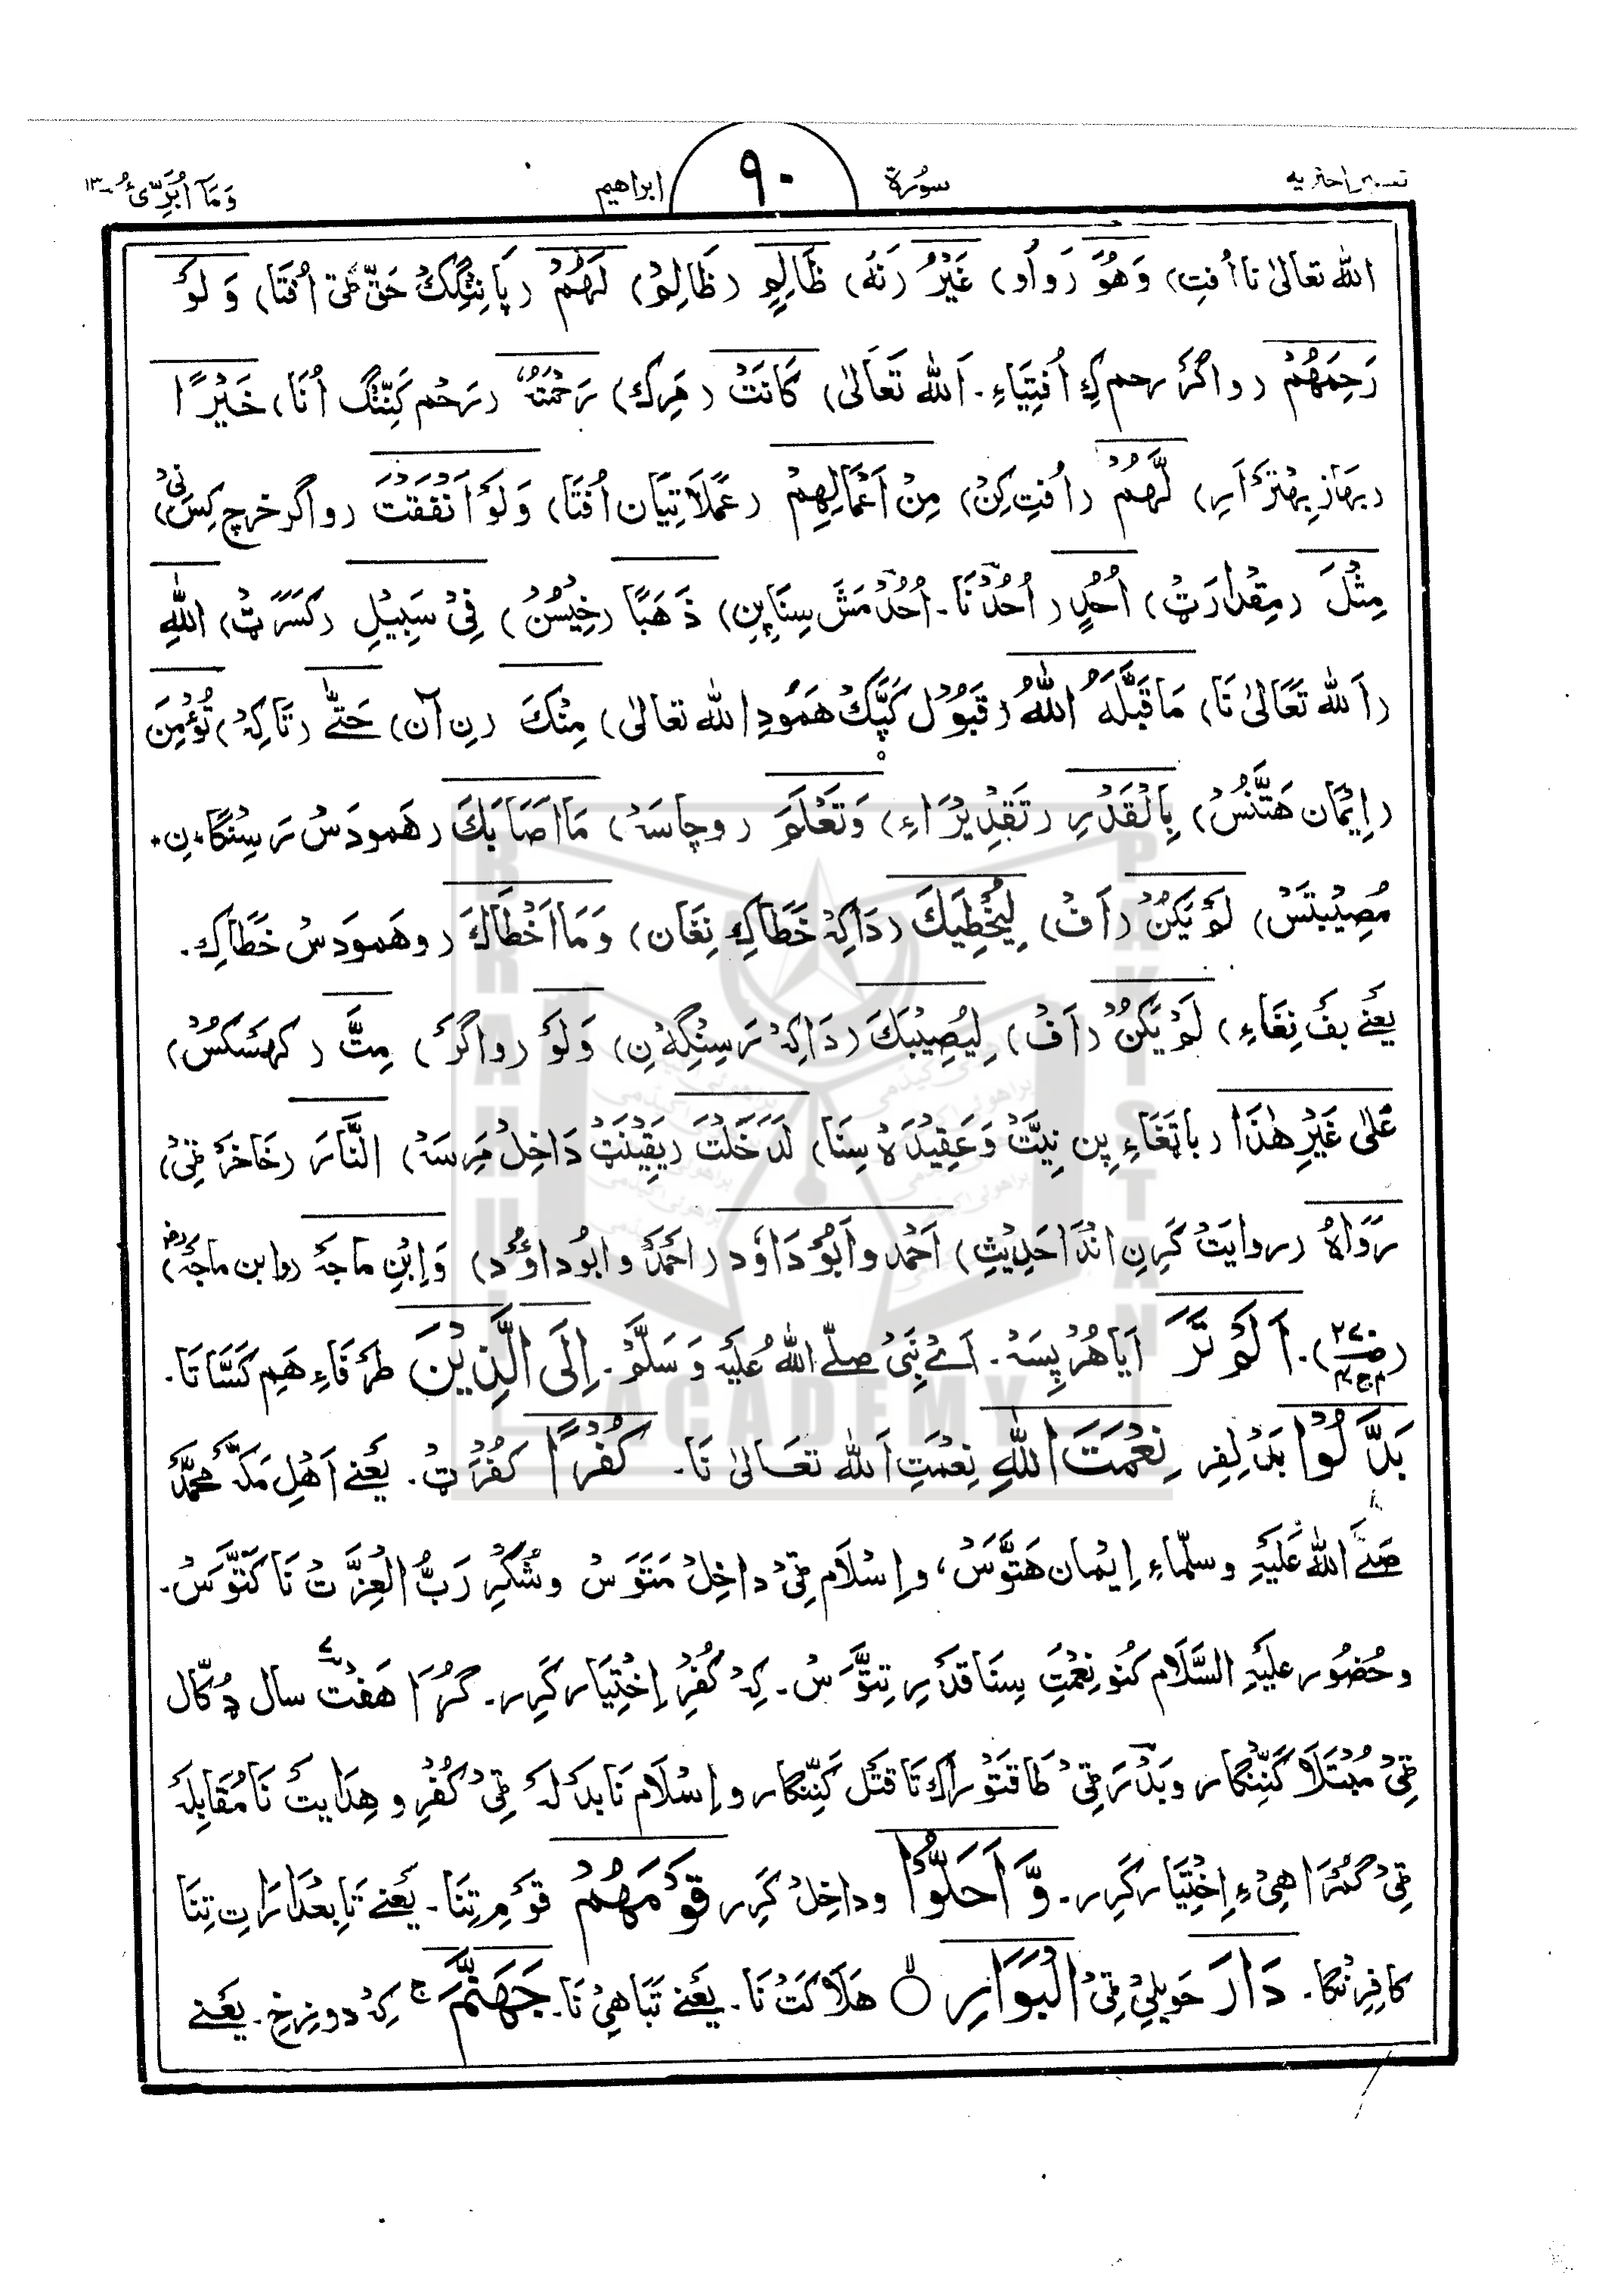 تفسیر اختریه سُورۃ ۹۰ ابراهیم وَمَآ اُبَرِّئُ ۱۳
الله تعالیٰ نا اُفتِ) وَهُوَ (واُو) غَیْرُ (نَهُ) ظَالِمٍ (ظَالِمْ) لَهُمْ (پَانِنْگِکْ حَقّ ٹی اُفتَا) وَلَوْ
رَحِمَهُمْ (واگرَ رحم کِ اُفتِیَاءِ۔ اَلله تَعَالیٰ) کَانَتْ (مَرِك) رَحْمَتُهٗ (رَحْم کَنِّنْگ اُنَا) خَیْرًا
(بهَاز بِهْتَرْ اَرِ) لَّهُمْ (اُفتِ کِنْ) مِنْ اَعْمَالِهِمْ (عَمَلَاتِیَان اُفتَا) وَلَوْ اَنْفَقْتَ (واگر خرچ کِس نیْ)
مِثْلَ (مِقْدَارَتْ) اُحُدٍ (اُحُدْ نَا۔ اُحُدْ مَشْ سِنَا پِن) ذَهَبًا (خِیْسُنْ) فِیْ سَبِیْلِ (کَسَرَٹْ) اللهِ
(اَلله تَعَالیٰ نَا) مَا قَبِلَهُ اللهُ (قَبُوْل کَپَّكْ هَمُودِ الله تعالیٰ) مِنْكَ (نِ آن) حَتّٰی (تَاکِهْ) تُؤْمِنَ
(اِیْمَان هَتَّنُسْ) بِالْقَدْرِ (تَقْدِیْرَاءِ) وَتَعْلَمَ (وچاسَهْ) مَا اَصَابَكَ (هَمودَسْ رَسِنْگَا نِ
مُصِیْبَتَسْ) لَمْ یَکُنْ (اَفْ) لِیُخْطِیَكَ (دَاکِهْ خَطَا کِ نِغَان) وَمَا اَخْطَاَكَ (وهَمودَسْ خَطَا کِ۔
یعنے بفَ نِغَاءِ) لَمْ یَکُنْ (اَفْ) لِیُصِیْبَكَ (دَاکِهْ رَسِنْگِهْ نِ) وَلَوْ (واگرَ) مِتَّ (کهَسْکُسْ)
عَلٰی غَیْرِ هٰذَا (باتَغَاءِ پِن نِیَّتْ وَعَقِیْدَهْ سِنَا) لَدَخَلْتَ (یَقِیْنَٹْ دَاخِلْ مَرِسَهْ) النَّارَ (خَاخَرْ ٹِیْ)
رَوَاهُ (روایَتْ کَرِنِ اَنْدَا حَدِیْثِ) اَحْمَد وَاَبُوْدَاوٗد (اَحْمَدْ وابوداؤد) وَاِبْنِ ماجَهْ (وابن ماجَهْ)
اَلَمْ تَرَ اَیَا هُرْپِیسَهْ۔ اَے نَبِیْ صَلَّے اللهُ عَلَیْهِ وَسَلَّمْ۔ اِلَی الَّذِیْنَ طرَفَاءِ هَمِ کَسَّاتَا۔
بَدَّلُوْا بَدَلِفِر نِعْمَتَ اللهِ نِعْمَتِ اَلله تعَالیٰ نَا۔ کُفْرًا کُفْرَٹْ۔ یَعْنے اَهْلِ مَکَّهْ مُحَمَّدْ
صَلَّے اللهُ عَلَیْهِ وسلّماءِ اِیْمَان هَتَّوَسْ، واِسْلَام ٹِیْ داخِلْ مَتَوَسْ وشُکْرِ رَبُّ الْعِزَّتْ نَا کَتَّوَسْ۔
وحُضُور عَلَیْهِ السَّلَام کُنُو نِعْمَتِ سِنَا قَدْرِ تِتَّوَسْ۔ کِهْ کُفْرِ اِخْتِیَار کَرِر۔ گُڑَا هَفْت سال دُکَّال
ٹِیْ مُبْتَلَا کَنِّنْگَار وبَدْرَ ٹِیْ طَاقَتْوَرَاكْ تَا قَتْل کَنِّنْگَار واِسْلَام نَا بَدَلَهْ ٹِیْ کُفْرِ وهِدَایَتْ نَا مُقَابِلَهْ
ٹِیْ گُمْرَاهِیْ ءِ اِخْتِیَار کَرِر۔ وَّ اَحَلُّوْا وداخِلْ کَرِر قَوْمَهُمْ قَوْمِ تِنَا۔ یَعْنے تَابِعْدَارَاتِ تِنَا
کافِرْنْگا۔ دَارَ حَوِیلِیْ ٹِیْ الْبَوَارِ هَلَاکَتْ نَا۔ یَعْنے تَبَاهِیْ نَا۔ جَهَنَّمَ ج کِهْ دوزخ۔ یَعْنے
BRAHUI ACADEMY PAKISTAN